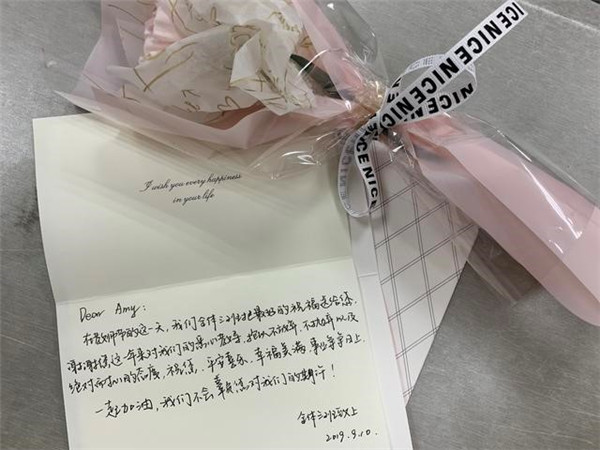 NICENICENICE
NICE
I wish you every happiness
in your life
Dear Amy:
在教师节的这一天，我们全体三班把最好的祝福送给您.
谢谢您这一年来对我们的悉心教导，从不放弃、不抛弃以及
绝对的态度，祝您：平安喜乐、幸福美满、事业蒸蒸日上.
一起加油，我们不会辜负您对我们的期许！
全体三班敬上
2019.9.10.